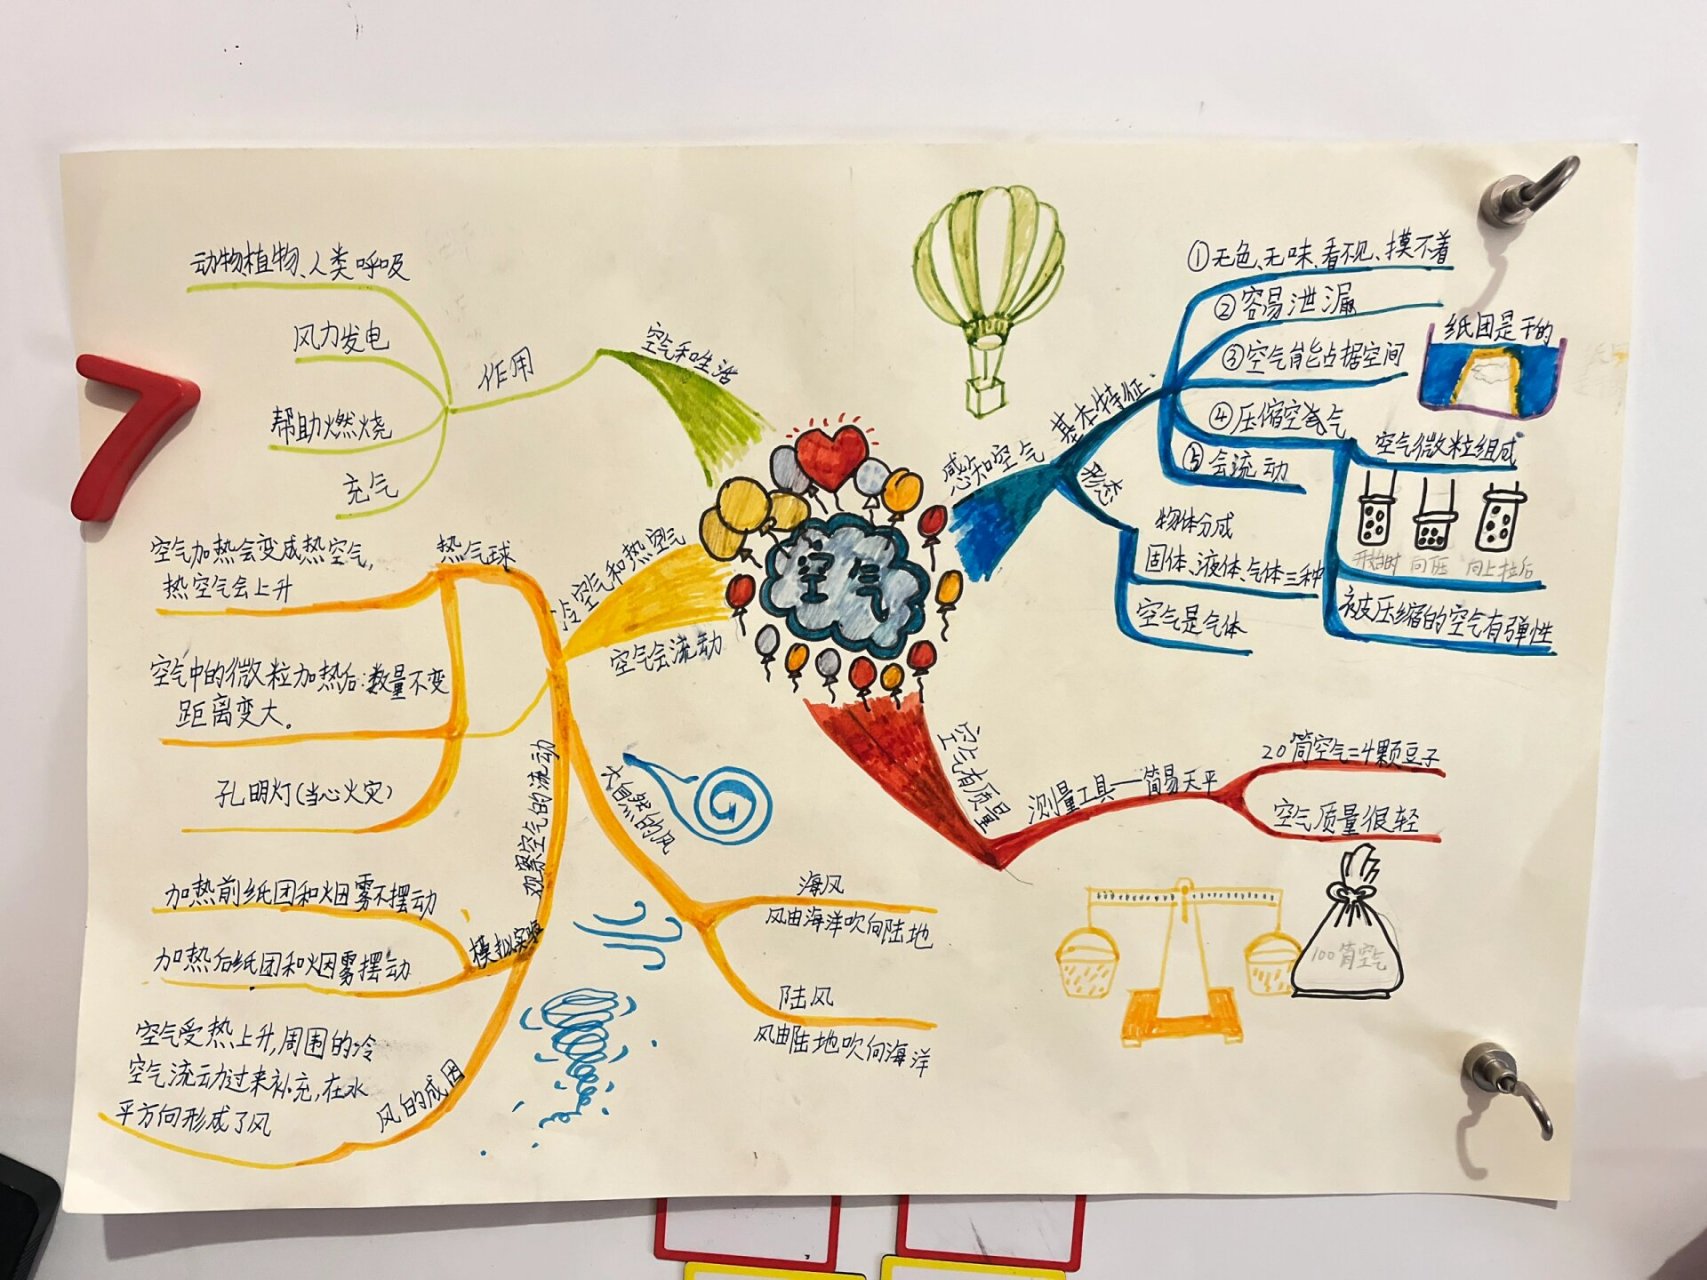 空气
感知空气
基本特征
①无色、无味、看不见、摸不着
②容易泄漏
③空气能占据空间
纸团是干的
④压缩空气
空气微粒组成
开始时 向下压 向上拉后
被压缩的空气有弹性
⑤会流动
形态
物体分成
固体、液体、气体三种
空气是气体
空气有质量
测量工具——简易天平
20筒空气=4颗豆子
空气质量很轻
100筒空气
冷空气和热空气
空气会流动
热气球
空气加热会变成热空气,
热空气会上升
空气中的微粒加热后:数量不变
距离变大。
孔明灯(当心火灾)
观察空气的流动
模拟实验
加热前纸团和烟雾不摆动
加热后纸团和烟雾摆动
风的成因
空气受热上升,周围的冷
空气流动过来补充,在水
平方向形成了风
大自然的风
海风
风由海洋吹向陆地
陆风
风由陆地吹向海洋
空气和生活
作用
动物植物、人类呼吸
风力发电
帮助燃烧
充气